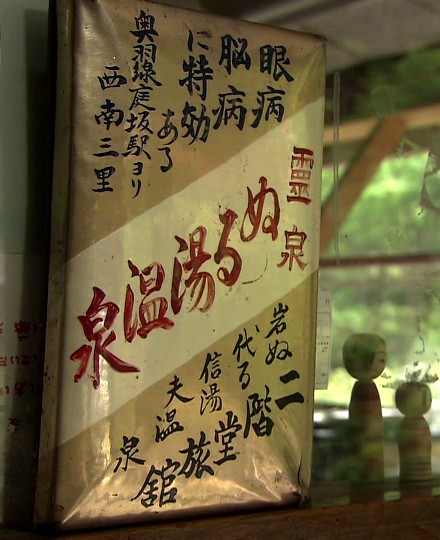 眼病
脳病
に特効
ある
奥羽線庭坂駅ヨリ
西南三里
霊泉
ぬる湯温泉
岩代信夫
ぬる湯温泉
二階堂旅舘